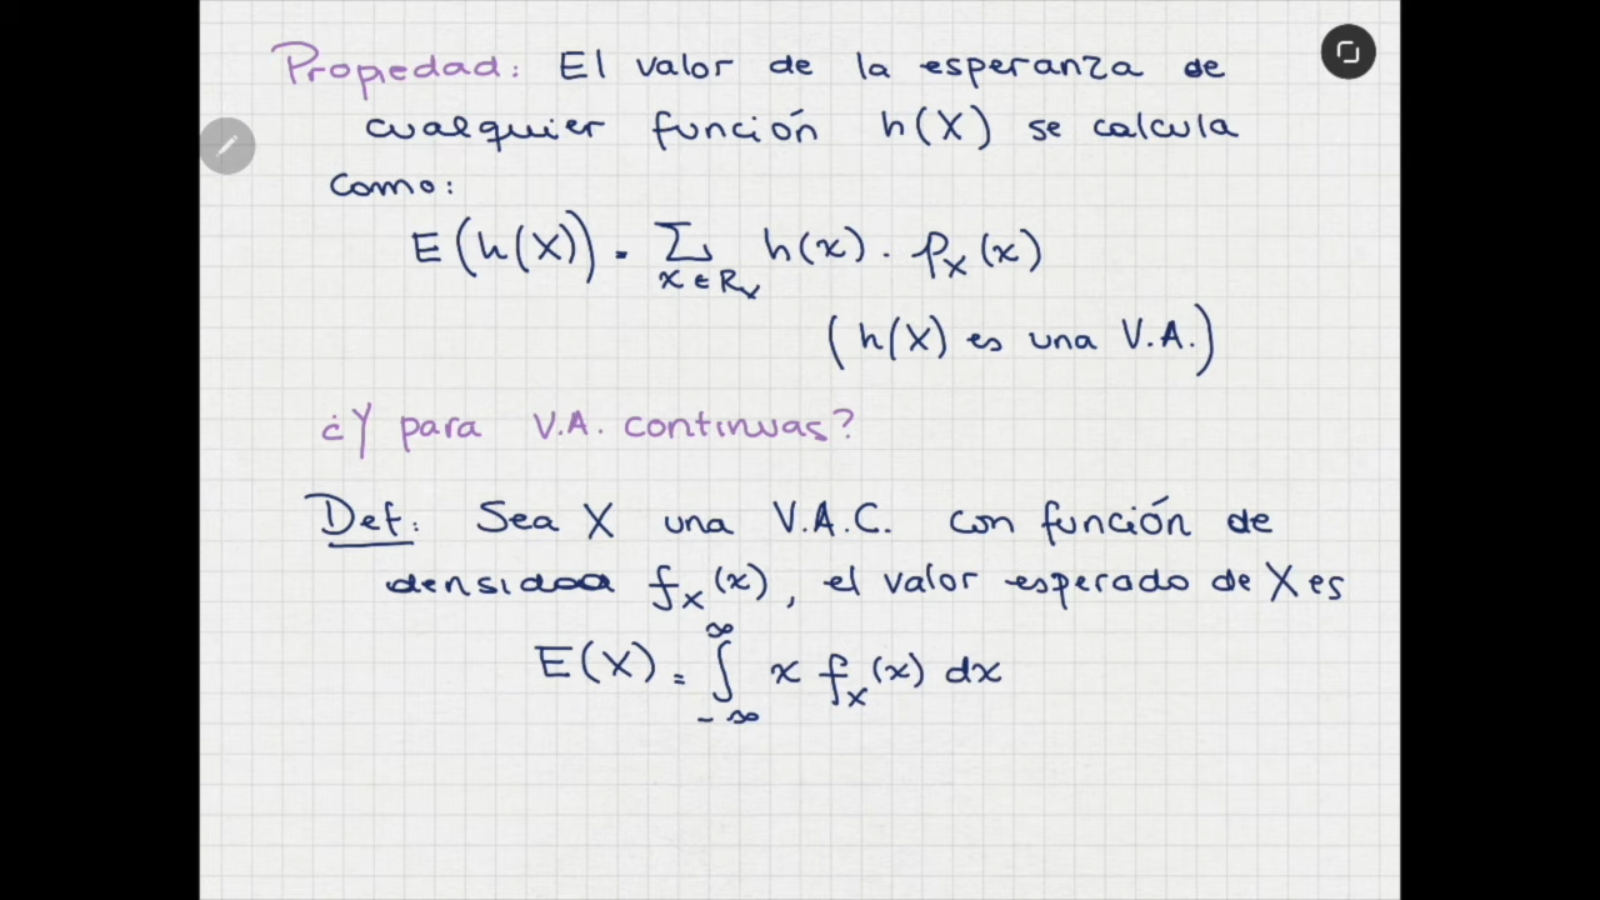 Propiedad: El valor de la esperanza de
cualquier función h(X) se calcula
como:
E(h(X)) = Σ h(x) . p_X(x)
x ∈ R_X
(h(X) es una V.A.)
¿Y para V.A. continuas?
Def: Sea X una V.A.C. con función de
densidad f_X(x), el valor esperado de X es
E(X) = ∫_{-∞}^{∞} x f_X(x) dx